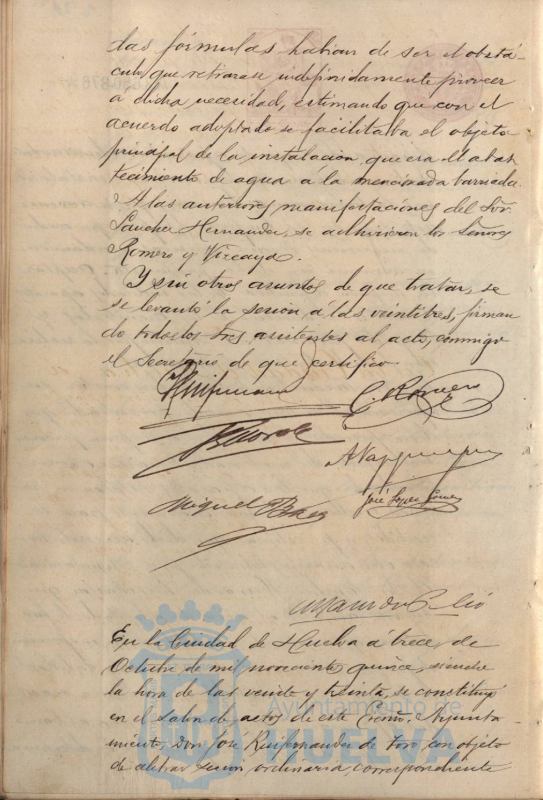 las fórmulas habian de ser el obstá-
culo que retrarase indefinidamente proveer
a dicha necesidad, estimando que con el
acuerdo adoptado se facilitaba el objeto
principal de la instalación, que era el abas
tecimiento de agua á la mencionada barriada.
A las anteriores manifestaciones del Sor.
Sanchez Hernandez, se adhirieron los Señores
Romero y Vizcaya.
Y sin otros asuntos de que tratar, se
se levantó la sesión á las veintitres, firman
do todos los tres asistentes al acto, conmigo
el Secretario de que certifico.
C. Romero
Miguel Báez
José Lopez Gomez
En la Ciudad de Huelva á trece de
Octubre de mil novecientos quince, siendo
la hora de las veinte y treinta, se constituyó
en el Salon de actos de este Excmo. Ayunta-
miento, Don José
de Toro, con objeto
de celebrar sesión ordinaria, correspondiente
Ayuntamiento de
HUELVA